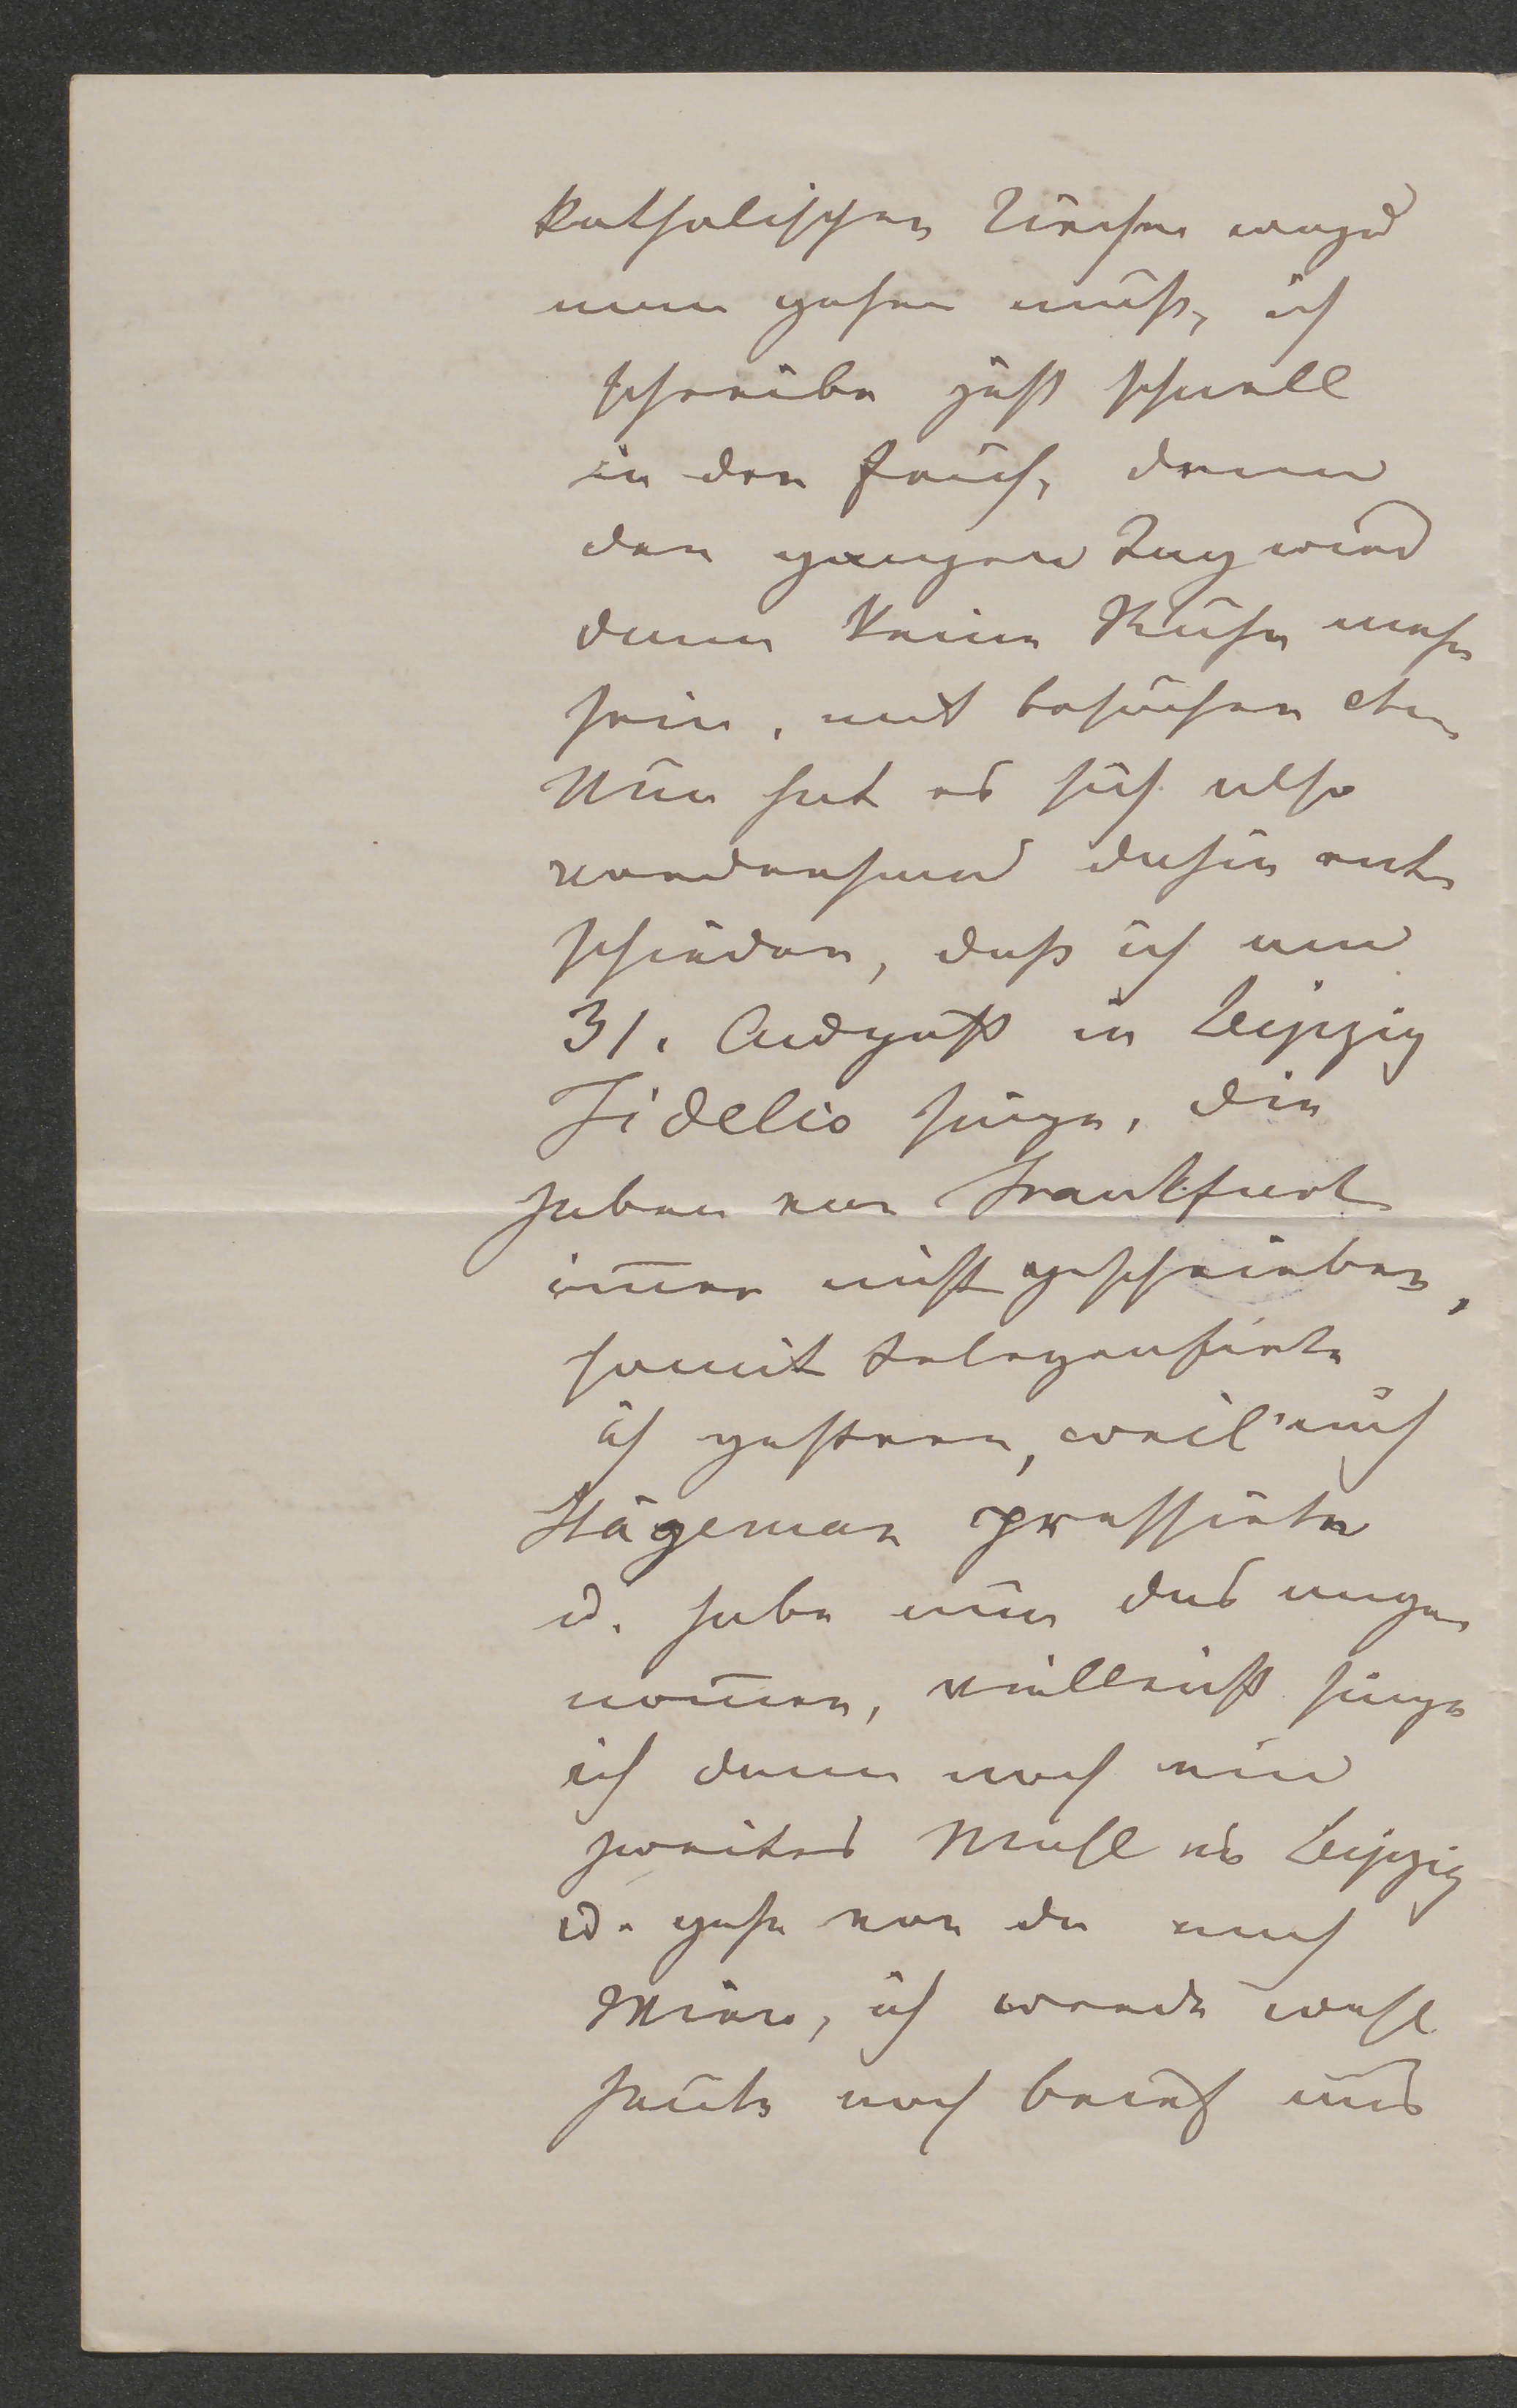 katholischen Kirchen wegen
man gehen muß, ich
schreibe jetzt schnell
in der Früh, denn
den ganzen Tag wird
dann keine Ruhe mehr
sein, mit besuchen etc.
Nun hat es sich also
dahin ent
schieden, daß ich am
31. August in Leipzig
Fidelio singe, die
haben von Frankfurt
im̅er nicht geschrieben,
somit telegrafirte
ich gestern, weil mich
Stägeman pressirte
u. habe nun das ange
nom̅en, vielleicht singe
ich dann noch ein
zweites Mahl in Leipzig
u. gehe von da nach
Wien, ich werde wohl
heute noch Brief aus